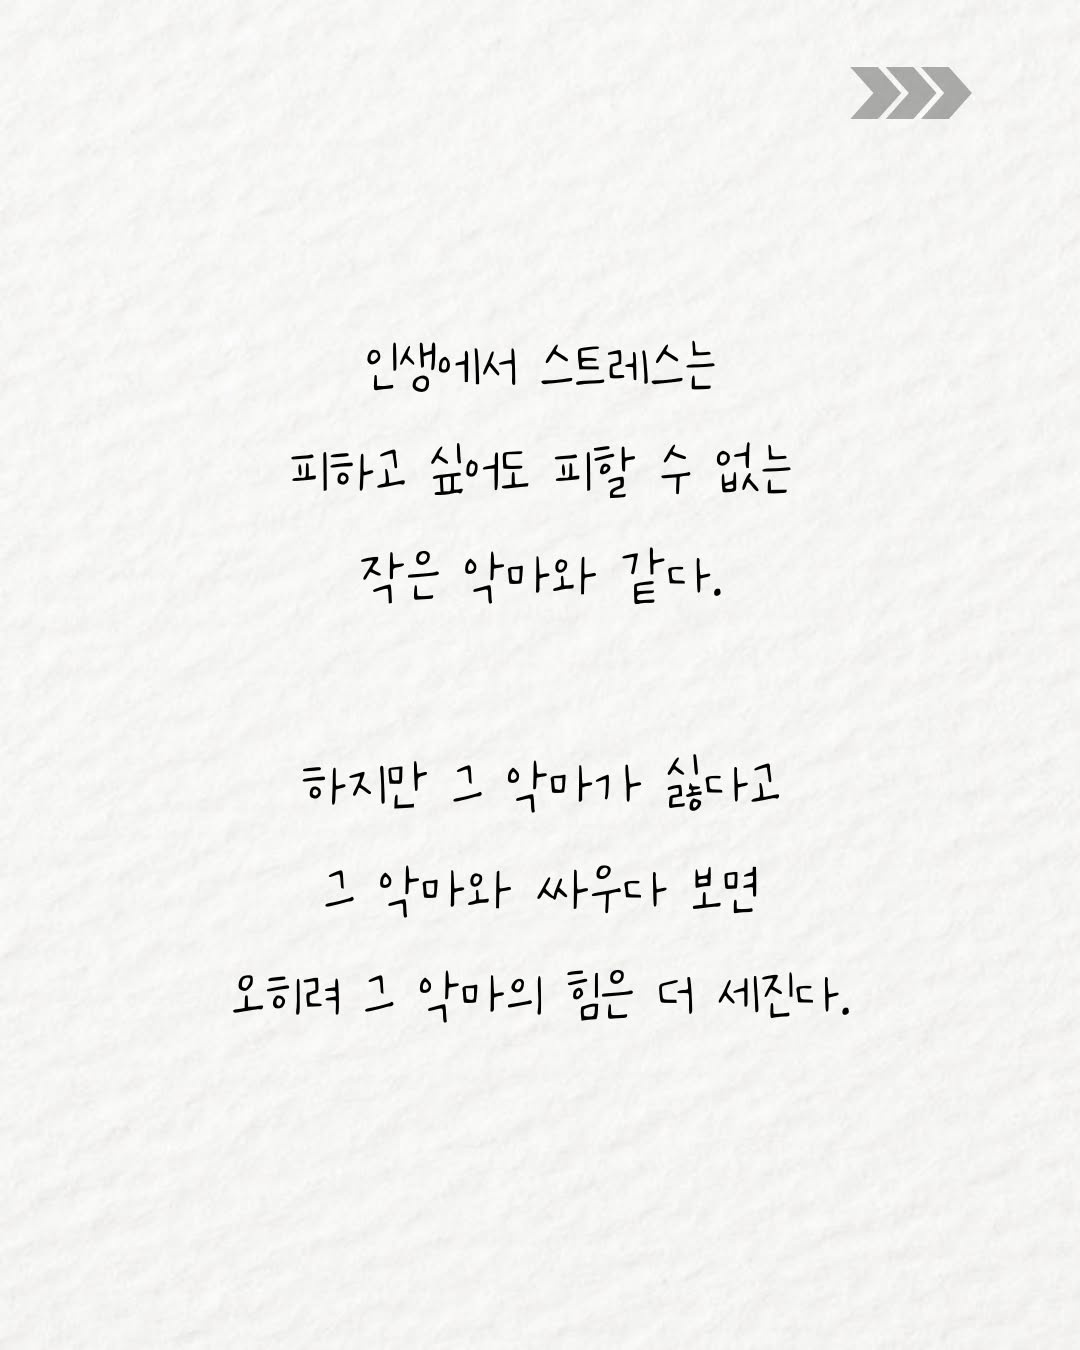 인생에서 스트레스는
피하고 싶어도 피할 수 없는
작은 악마와 같다.
하지만 그 악마가 싫다고
그 악마와 싸우다 보면
오히려 그 악마의 힘은 더 세진다.